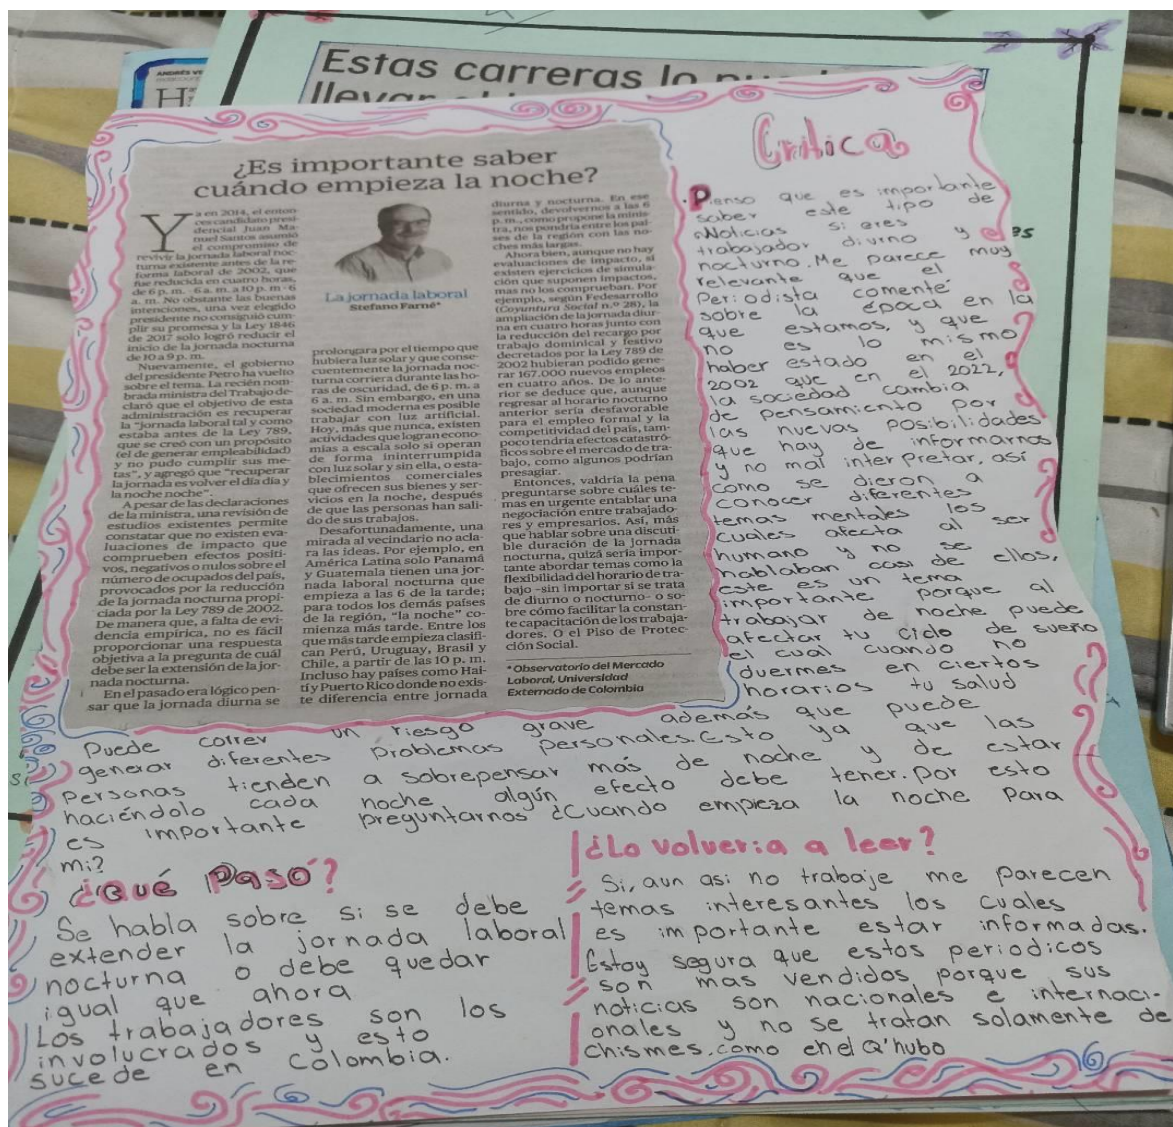 Estas carreras lo
¿Es importante saber
cuándo empieza la noche?
Ya en 2014, el enton-
ces candidato presi-
dencial Juan Ma-
nuel Santos asumió
el compromiso de
revivir la jornada laboral noc-
turna existente antes de la re-
forma laboral de 2002, que
fue reducida en cuatro horas,
de 6 p. m. - 6 a. m. a 10 p. m - 6
a. m. No obstante las buenas
intenciones, una vez elegido
presidente no consiguió cum-
plir su promesa y la Ley 1846
de 2017 solo logró reducir el
inicio de la jornada nocturna
de 10 a 9 p. m.
Nuevamente, el gobierno
del presidente Petro ha vuelto
sobre el tema. La recién nom-
brada ministra del Trabajo de-
claró que el objetivo de esta
administración es recuperar
la "jornada laboral tal y como
estaba antes de la Ley 789,
que se creó con un propósito
(el de generar empleabilidad)
y no pudo cumplir sus me-
tas", y agregó que "recuperar
la jornada es volver el día día y
la noche noche".
A pesar de las declaraciones
de la ministra, una revisión de
estudios existentes permite
constatar que no existen eva-
luaciones de impacto que
comprueben efectos positi-
vos, negativos o nulos sobre el
número de ocupados del país,
provocados por la reducción
de la jornada nocturna propi-
ciada por la Ley 789 de 2002.
De manera que, a falta de evi-
dencia empírica, no es fácil
proporcionar una respuesta
objetiva a la pregunta de cuál
debe ser la extensión de la jor-
nada nocturna.
En el pasado era lógico pen-
sar que la jornada diurna se
La jornada laboral
Stefano Farné*
prolongara por el tiempo que
hubiera luz solar y que conse-
cuentemente la jornada noc-
turna corriera durante las ho-
ras de oscuridad, de 6 p. m. a
6 a. m. Sin embargo, en una
sociedad moderna es posible
trabajar con luz artificial.
Hoy, más que nunca, existen
actividades que logran econo-
mías a escala solo si operan
de forma ininterrumpida
con luz solar y sin ella, o esta-
blecimientos comerciales
que ofrecen sus bienes y ser-
vicios en la noche, después
de que las personas han sali-
do de sus trabajos.
Desafortunadamente, una
mirada al vecindario no acla-
ra las ideas. Por ejemplo, en
América Latina solo Panamá
y Guatemala tienen una jor-
nada laboral nocturna que
empieza a las 6 de la tarde;
para todos los demás países
de la región, "la noche" co-
mienza más tarde. Entre los
que más tarde empieza clasifi-
can Perú, Uruguay, Brasil y
Chile, a partir de las 10 p. m.
Incluso hay países como Hai-
tí y Puerto Rico donde no exis-
te diferencia entre jornada
diurna y nocturna. En ese
sentido, devolvernos a las 6
p. m., como propone la minis-
tra, nos pondría entre los paí-
ses de la región con las no-
ches más largas.
Ahora bien, aunque no hay
evaluaciones de impacto, sí
existen ejercicios de simula-
ción que suponen impactos,
mas no los comprueban. Por
ejemplo, según Fedesarrollo
(Coyuntura Social n.º 28), la
ampliación de la jornada diur-
na en cuatro horas junto con
la reducción del recargo por
trabajo dominical y festivo
decretados por la Ley 789 de
2002 hubieran podido gene-
rar 167.000 nuevos empleos
en cuatro años. De lo ante-
rior se deduce que, aunque
regresar al horario nocturno
anterior sería desfavorable
para el empleo formal y la
competitividad del país, tam-
poco tendría efectos catastró-
ficos sobre el mercado de tra-
bajo, como algunos podrían
presagiar.
Entonces, valdría la pena
preguntarse sobre cuáles te-
mas en urgente entablar una
negociación entre trabajado-
res y empresarios. Así, más
que hablar sobre una discuti-
ble duración de la jornada
nocturna, quizá sería impor-
tante abordar temas como la
flexibilidad del horario de tra-
bajo -sin importar si se trata
de diurno o nocturno- o so-
bre cómo facilitar la constan-
te capacitación de los trabaja-
dores. O el Piso de Protec-
ción Social.
*Observatorio del Mercado
Laboral, Universidad
Externado de Colombia
Critica
Pienso que es importante
saber este tipo de
Noticias si eres
trabajador diurno y
nocturno. Me parece muy
relevante que el
Periodista comente
sobre la época en la
que estamos, y que
no es lo mismo
haber estado en el
2002 que en el 2022,
la sociedad cambia
de pensamiento por
las nuevas posibilidades
que hay de informarnos
y no mal interpretar, así
como se dieron a
conocer diferentes
temas mentales los
cuales afecta al ser
humano y no se
hablaban casi de ellos,
este es un tema
importante porque al
trabajar de noche puede
afectar tu ciclo de sueño
el cual cuando no
duermes en ciertos
horarios tu salud
Puede correr un riesgo grave además que puede
generar diferentes problemas personales. Esto ya que las
Personas tienden a sobrepensar más de noche y de estar
haciéndolo cada noche algún efecto debe tener. Por esto
es importante preguntarnos ¿Cuando empieza la noche para
mi?
¿Qué Pasó?
Se habla sobre si se debe
extender la jornada laboral
nocturna o debe quedar
igual que ahora
Los trabajadores son los
involucrados y esto
sucede en Colombia.
¿Lo volveria a leer?
Si, aun asi no trabaje me parecen
temas interesantes los cuales
es importante estar informadas.
Estoy segura que estos periodicos
son mas vendidos porque sus
noticias son nacionales e internaci-
onales y no se tratan solamente de
chismes. como en el Q'hubo